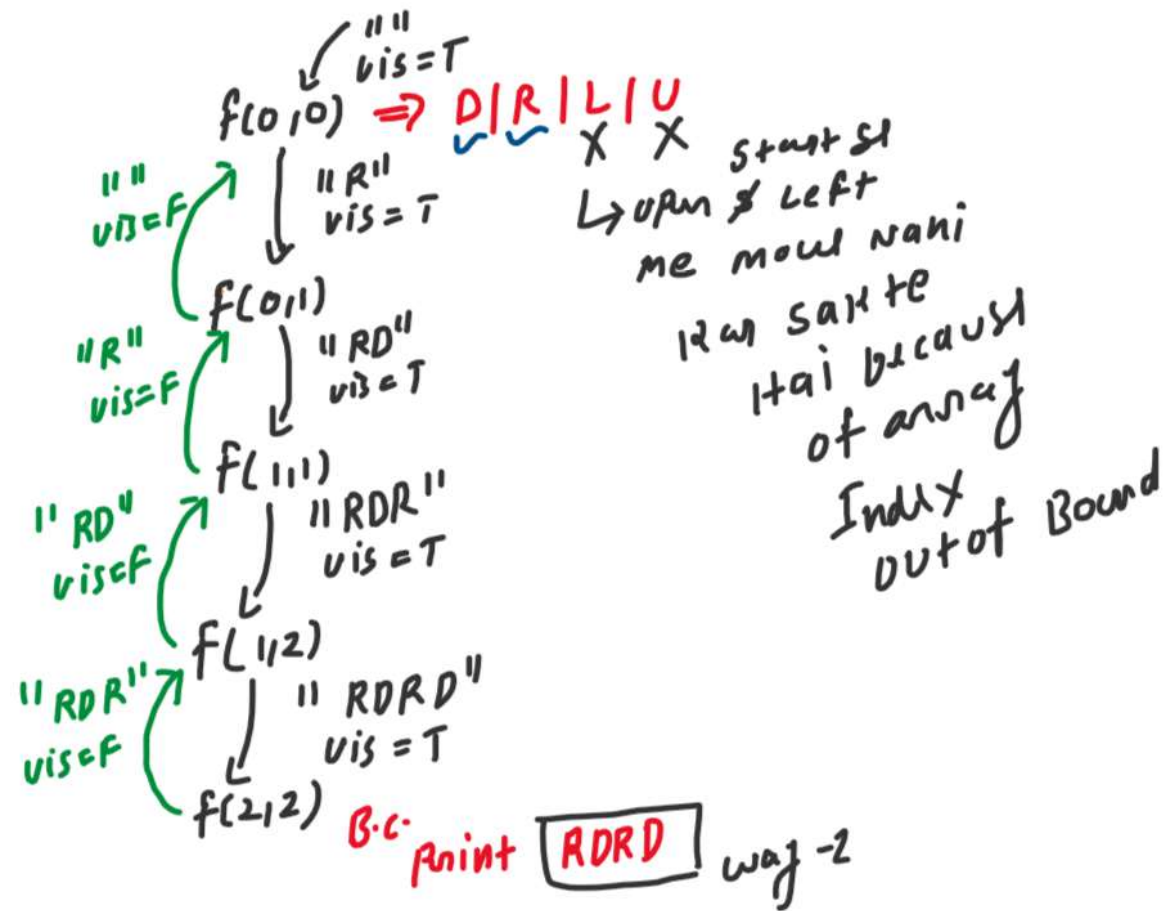 ""
vis=T
f(0,0) => D|R|L|U
X X
"R"
vis=T
""
vis=F
Start se
↳ upar $ Left
me move nahi
kar sakte
Hai because
of array
Index
out of Bound
f(0,1)
"RD"
vis=T
"R"
vis=F
f(1,1)
"RDR"
vis=T
"RD"
vis=F
f(1,2)
"RDRD"
vis=T
"RDR"
vis=F
f(2,2) B.C. print RDRD way-2